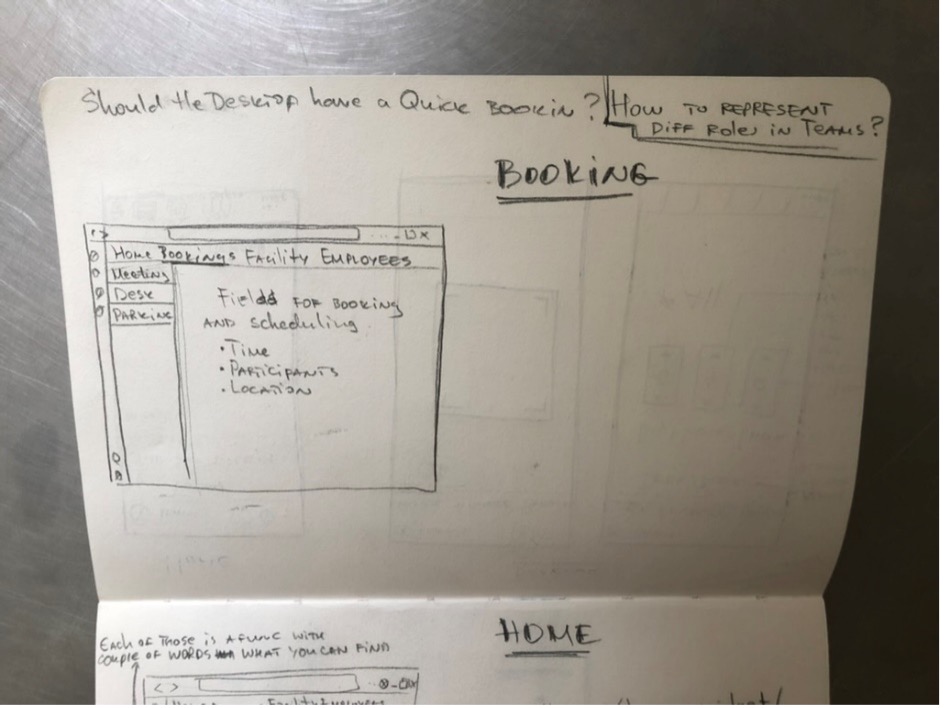 Should the Desktop have a Quick Bookin?
How to represent
Diff Roles in Teams?
BOOKING
Home Bookings Facility Employees
Meeting
Desk
Parking
Fields for booking
and scheduling
• Time
• Participants
• Location
HOME
Each of those is a func with
couple of words what you can find